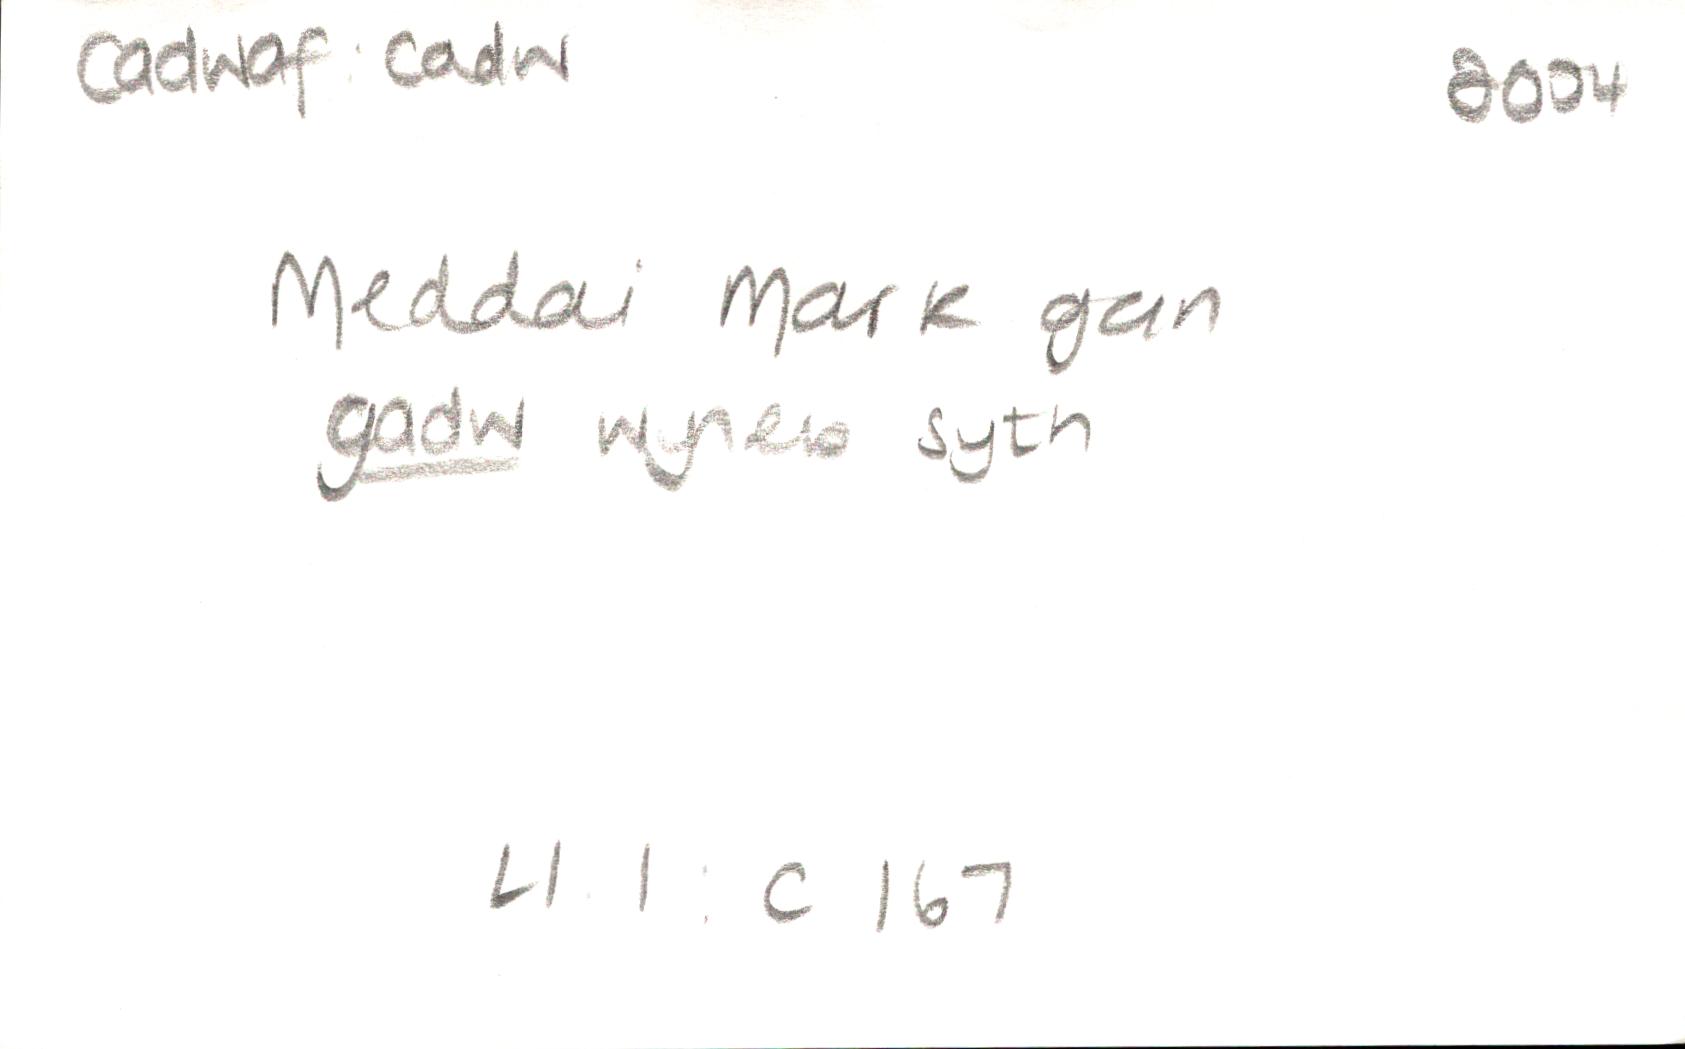 Cadwaf: cadw
2004
Meddai Mark gan
gadw wyneb syth
Ll. 1: C 167